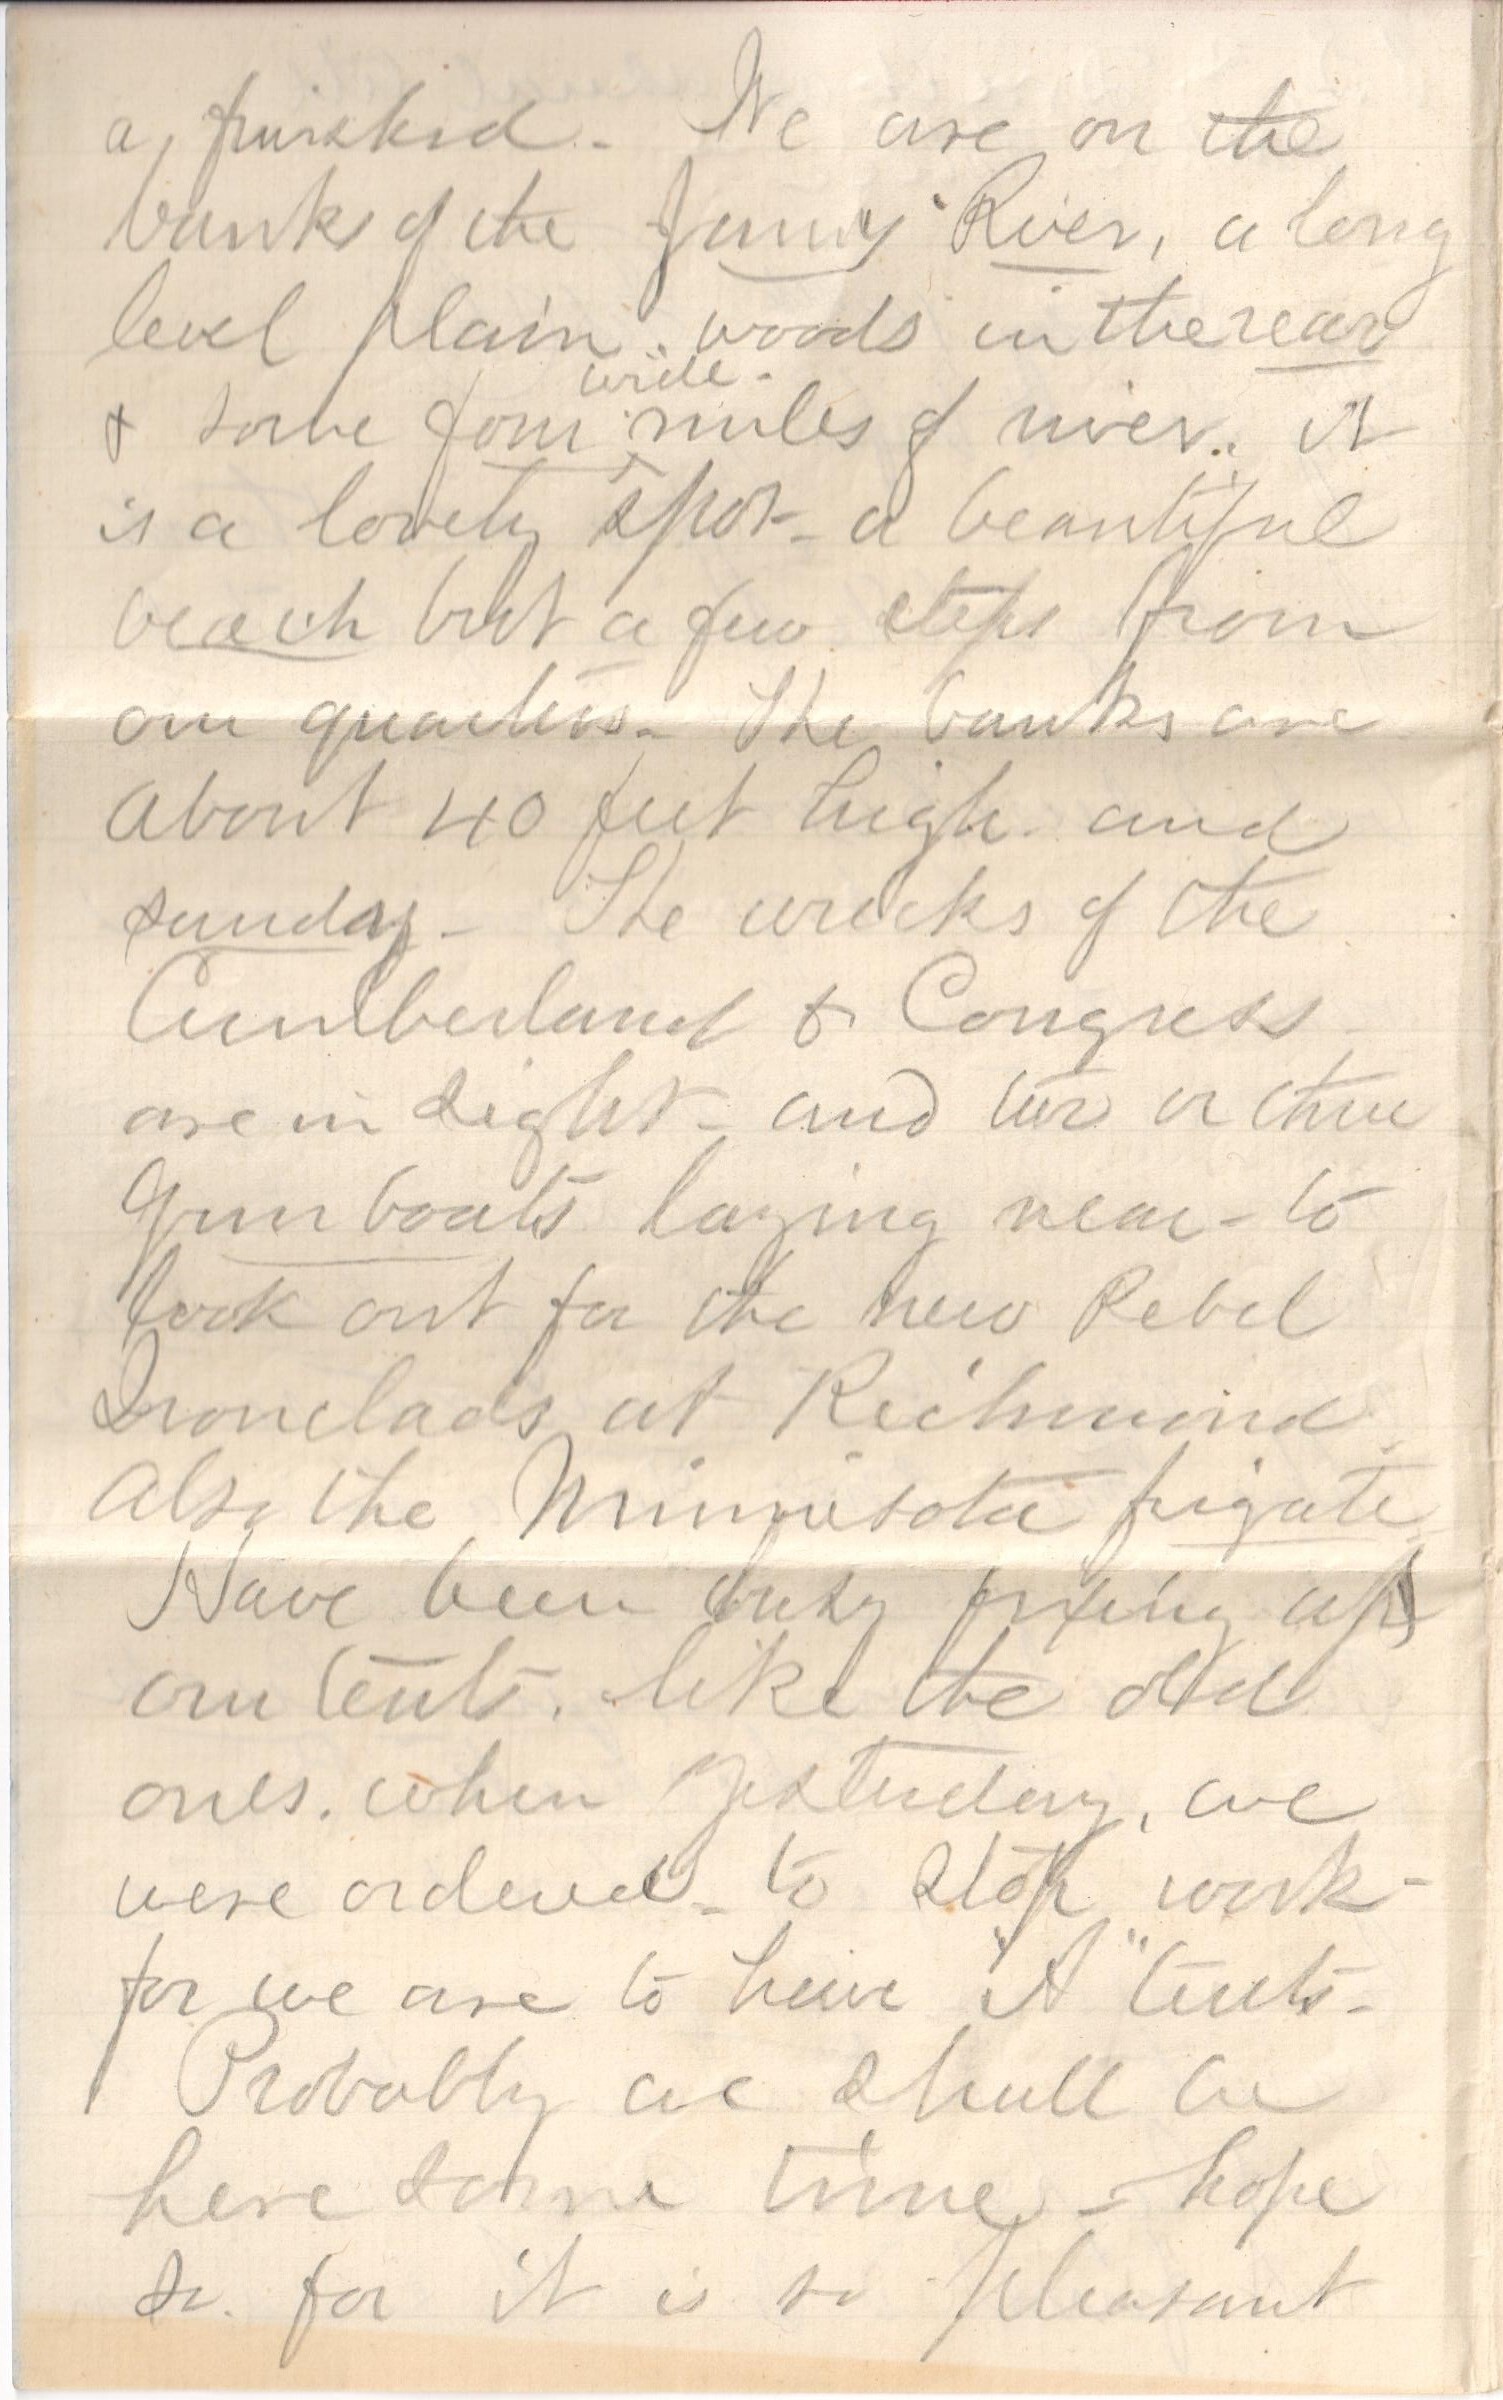 a, finished - We are on the
banks of the "Jimmy" River, a long
level plain. woods in the rear
& some four wide - miles of river. it
is a lovely spot - a beautiful
beach but a few steps from
our quarters - The banks are
about 40 feet high and
sunday - The wrecks of the
Cumberland & Congress
are in sight - and two or three
Gun boats laying near - to
look out for the new Rebel
Ironclads at Richmond
also the Minnisota frigate
Have been busy fixing up
our tents. like the old
ones. when yesterday, we
were ordered - to stop work -
for we are to have "A" tents -
Probably we shall be
here some time - hope
so. for it is so pleasant